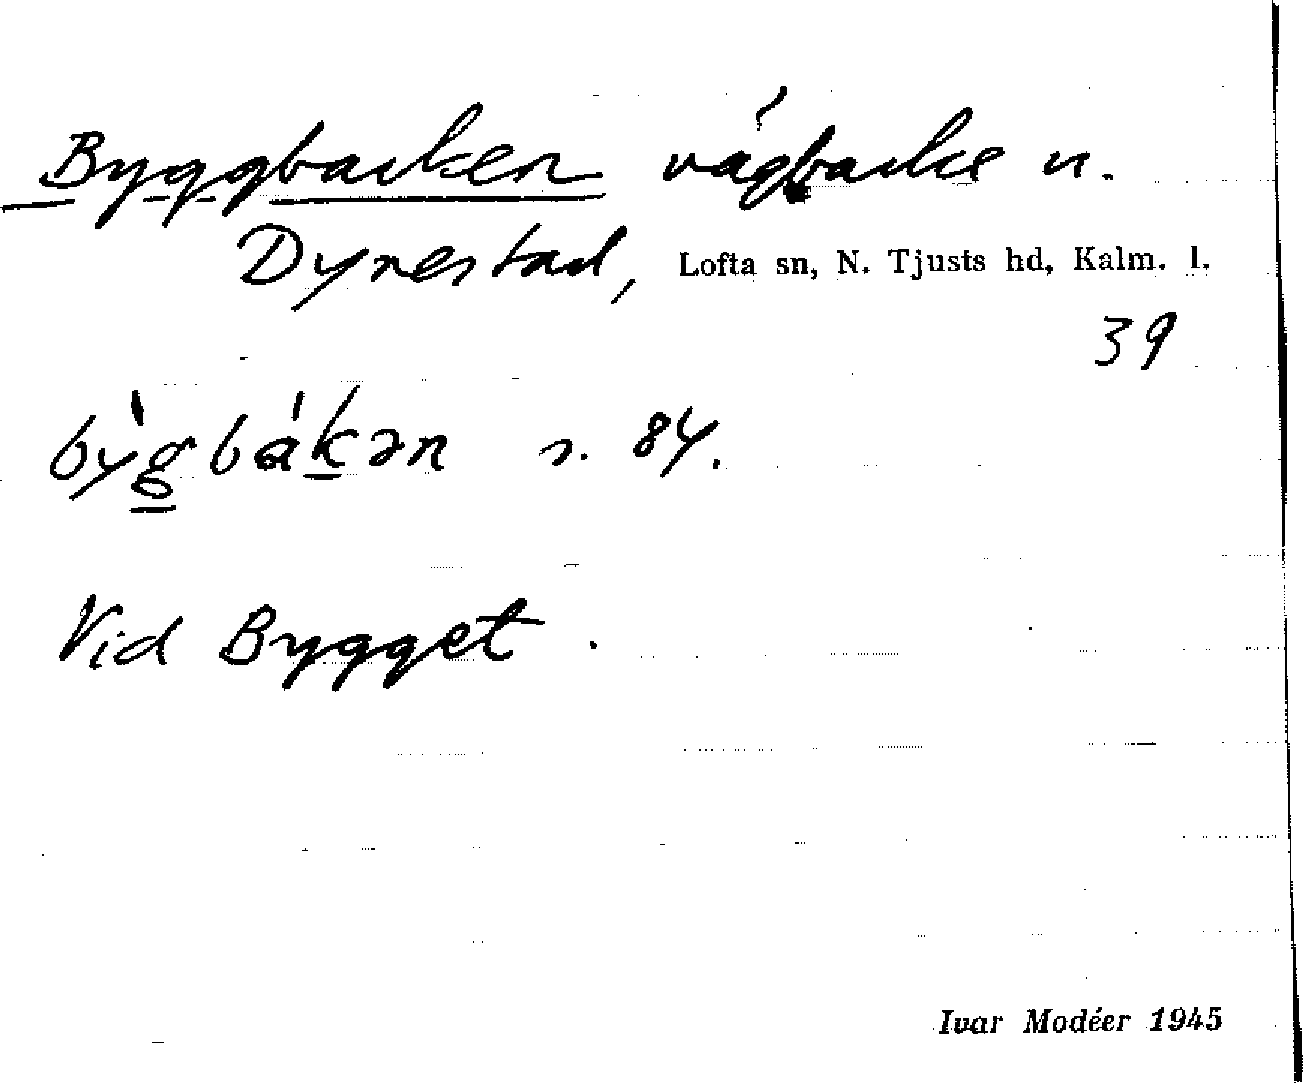 Byggbacken vägbacke n.
Dynestad, Lofta sn, N. Tjusts hd, Kalm. l.
39
by̍gba̍kən s. 84.
Vid Bygget.
Ivar Modéer 1945